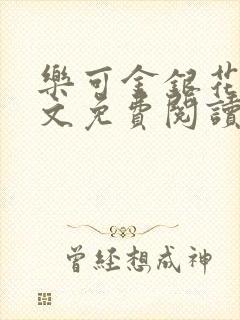 樂可金銀花
文免費閱讀
曾經想成神